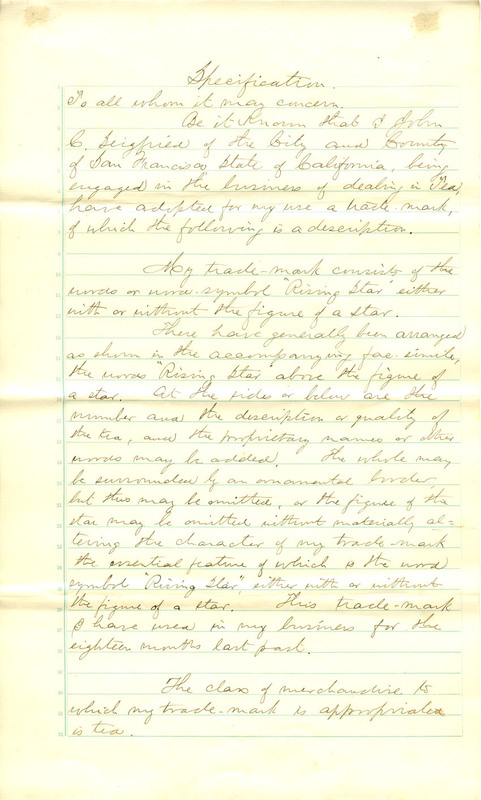 Specification.
To all whom it may concern.
Be it Known that I John
C. Seigfried of the City and County
of San Francisco State of California, being
engaged in the business of dealing in Tea,
have adopted for my use a trade-mark,
of which the following is a description.
My trade-mark consists of the
words or word-symbol "Rising Star" either
with or without the figure of a star.
These have generally been arranged
as shown in the accompanying fac-simile,
the words "Rising Star" above the figure of
a star. At the sides or below are the
number and the description or quality of
the tea, and the proprietary names or other
words may be added. The whole may
be surrounded by an ornamental border,
but this may be omitted, or the figure of the
star may be omitted without materially al-
tering the character of my trade-mark
the essential feature of which is the word
symbol "Rising Star", either with or without
the figure of a star. This trade-mark
I have used in my business for the
eighteen months last past.
The class of merchandise to
which my trade-mark is appropriated
is tea.